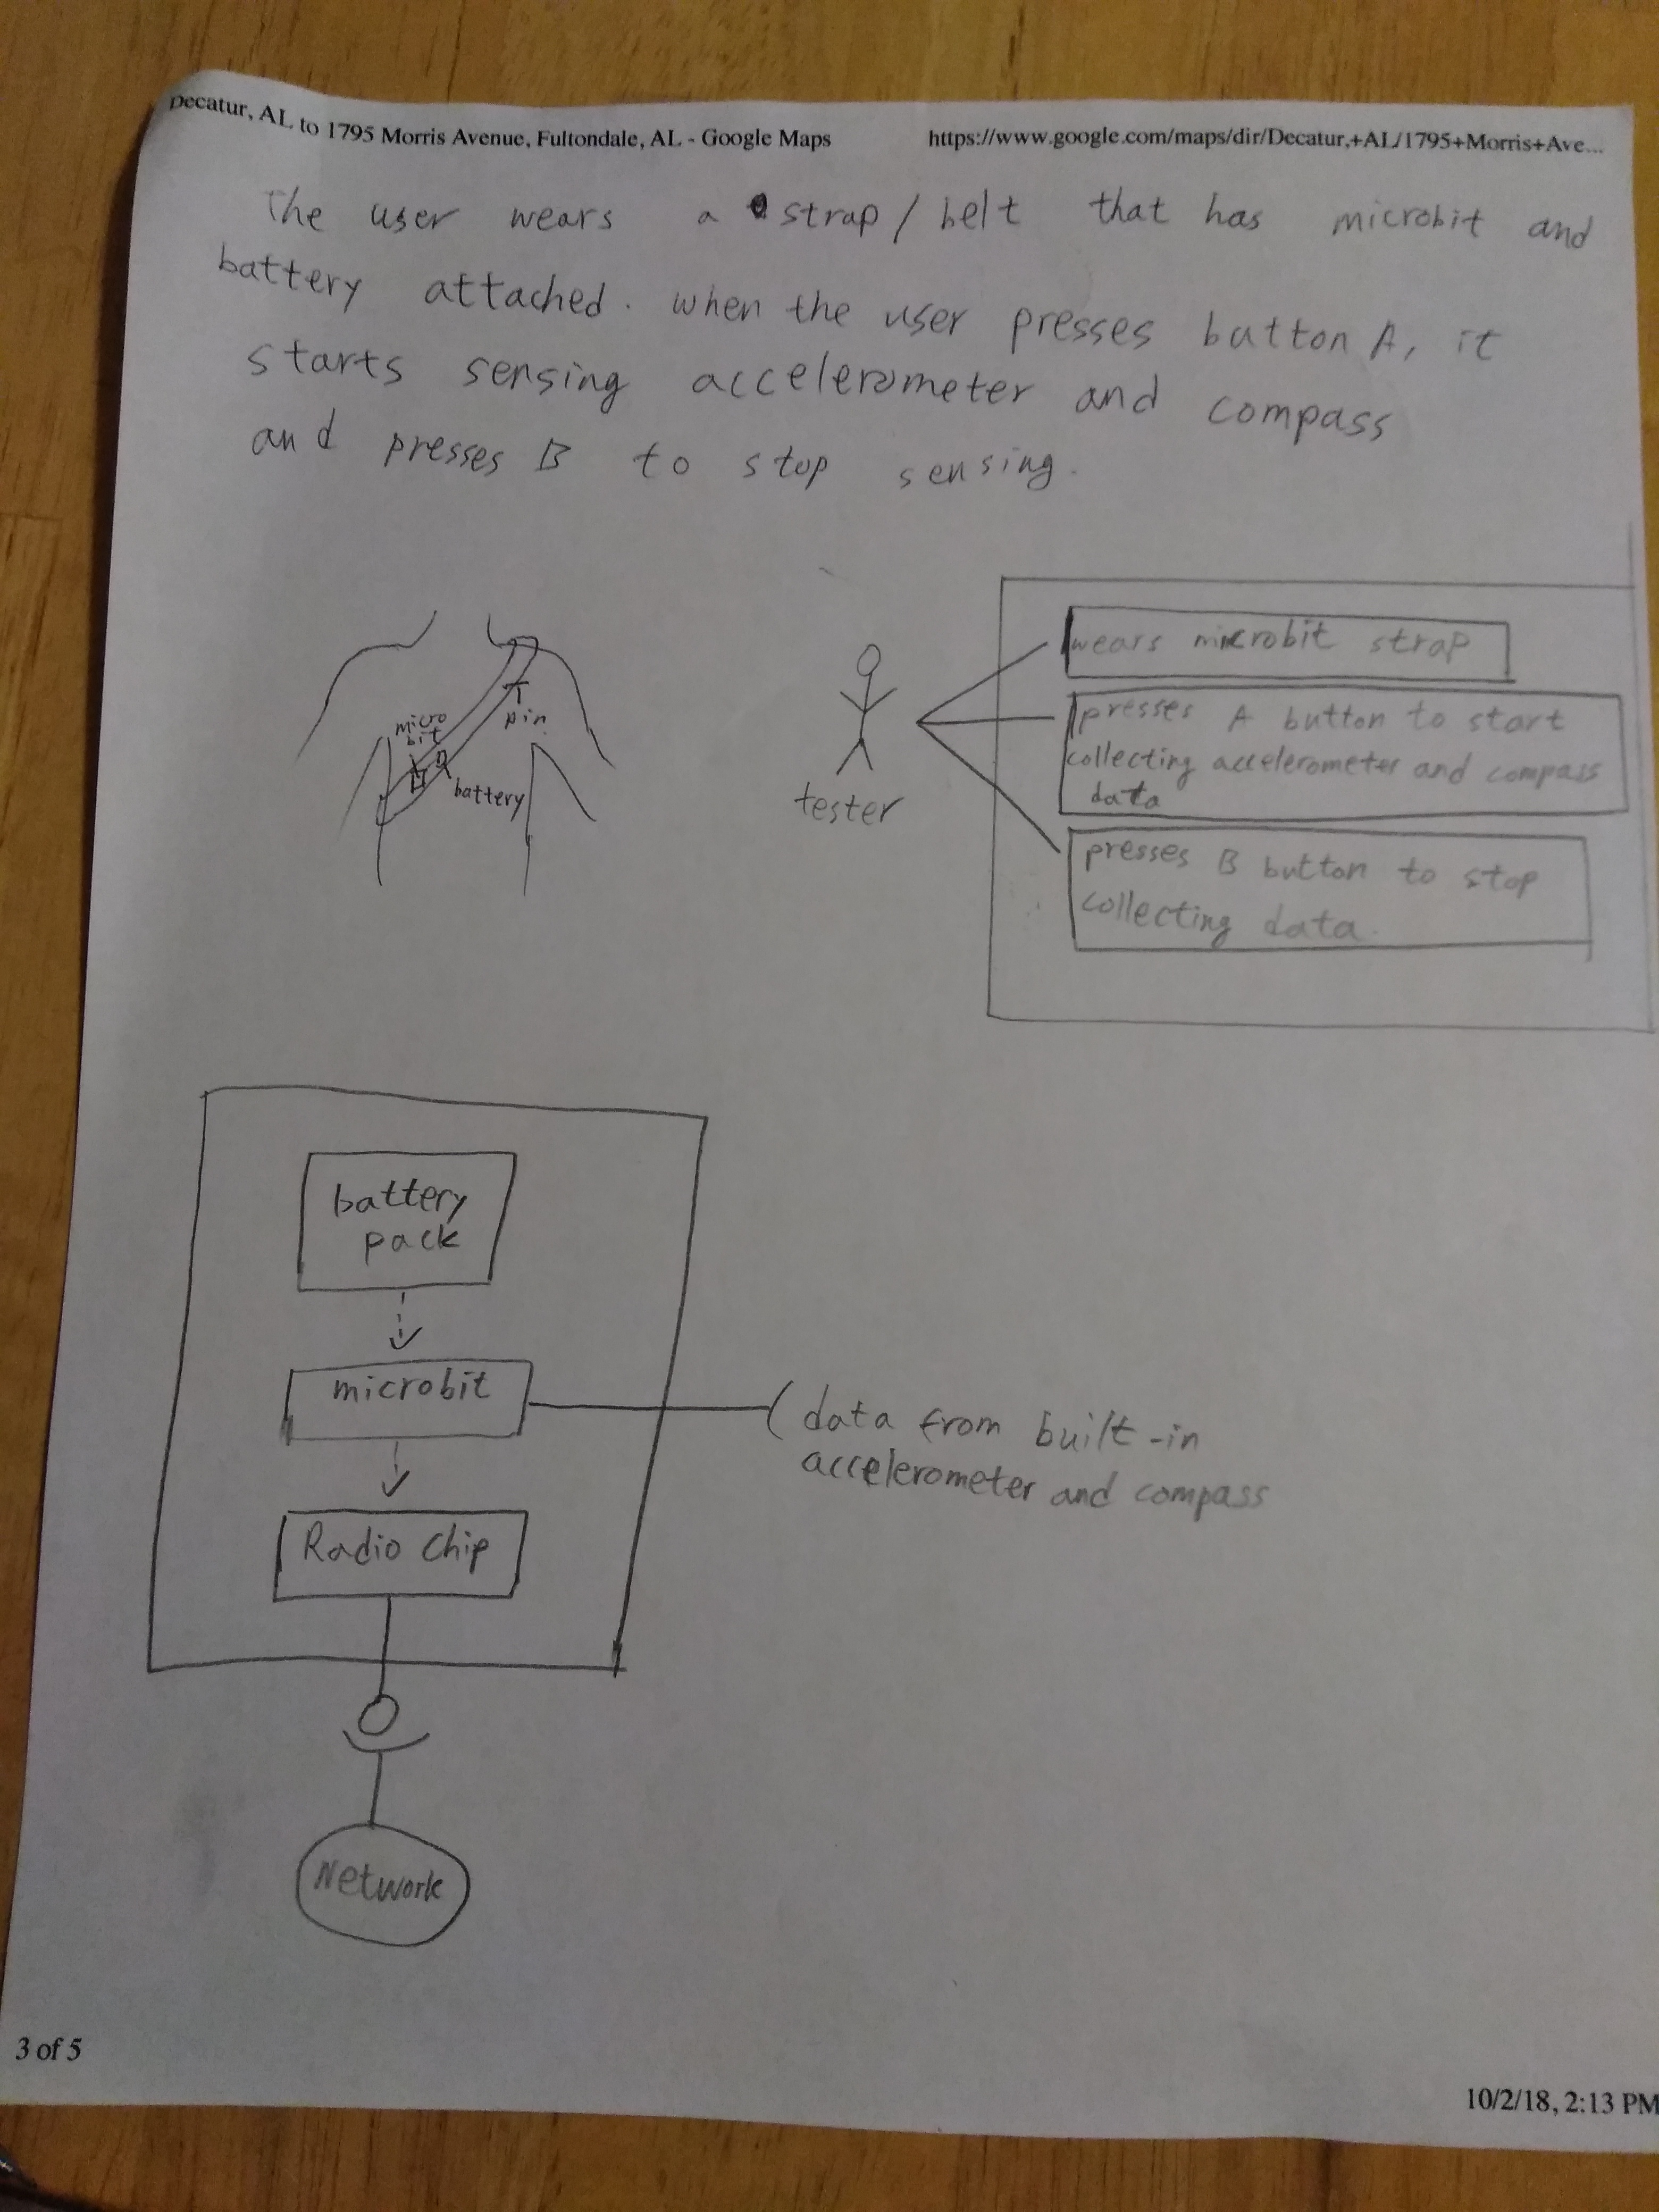 Decatur, AL to 1795 Morris Avenue, Fultondale, AL - Google Maps
https://www.google.com/maps/dir/Decatur,+AL/1795+Morris+Ave...
The user wears a strap / belt that has microbit and
battery attached. when the user presses button A, it
starts sensing accelerometer and compass
and presses B to stop sensing.
micro
bit
pin
battery
tester
wears microbit strap
presses A button to start
collecting accelerometer and compass
data
presses B button to stop
collecting data.
battery
pack
microbit
data from built-in
accelerometer and compass
Radio Chip
Network
3 of 5
10/2/18, 2:13 PM